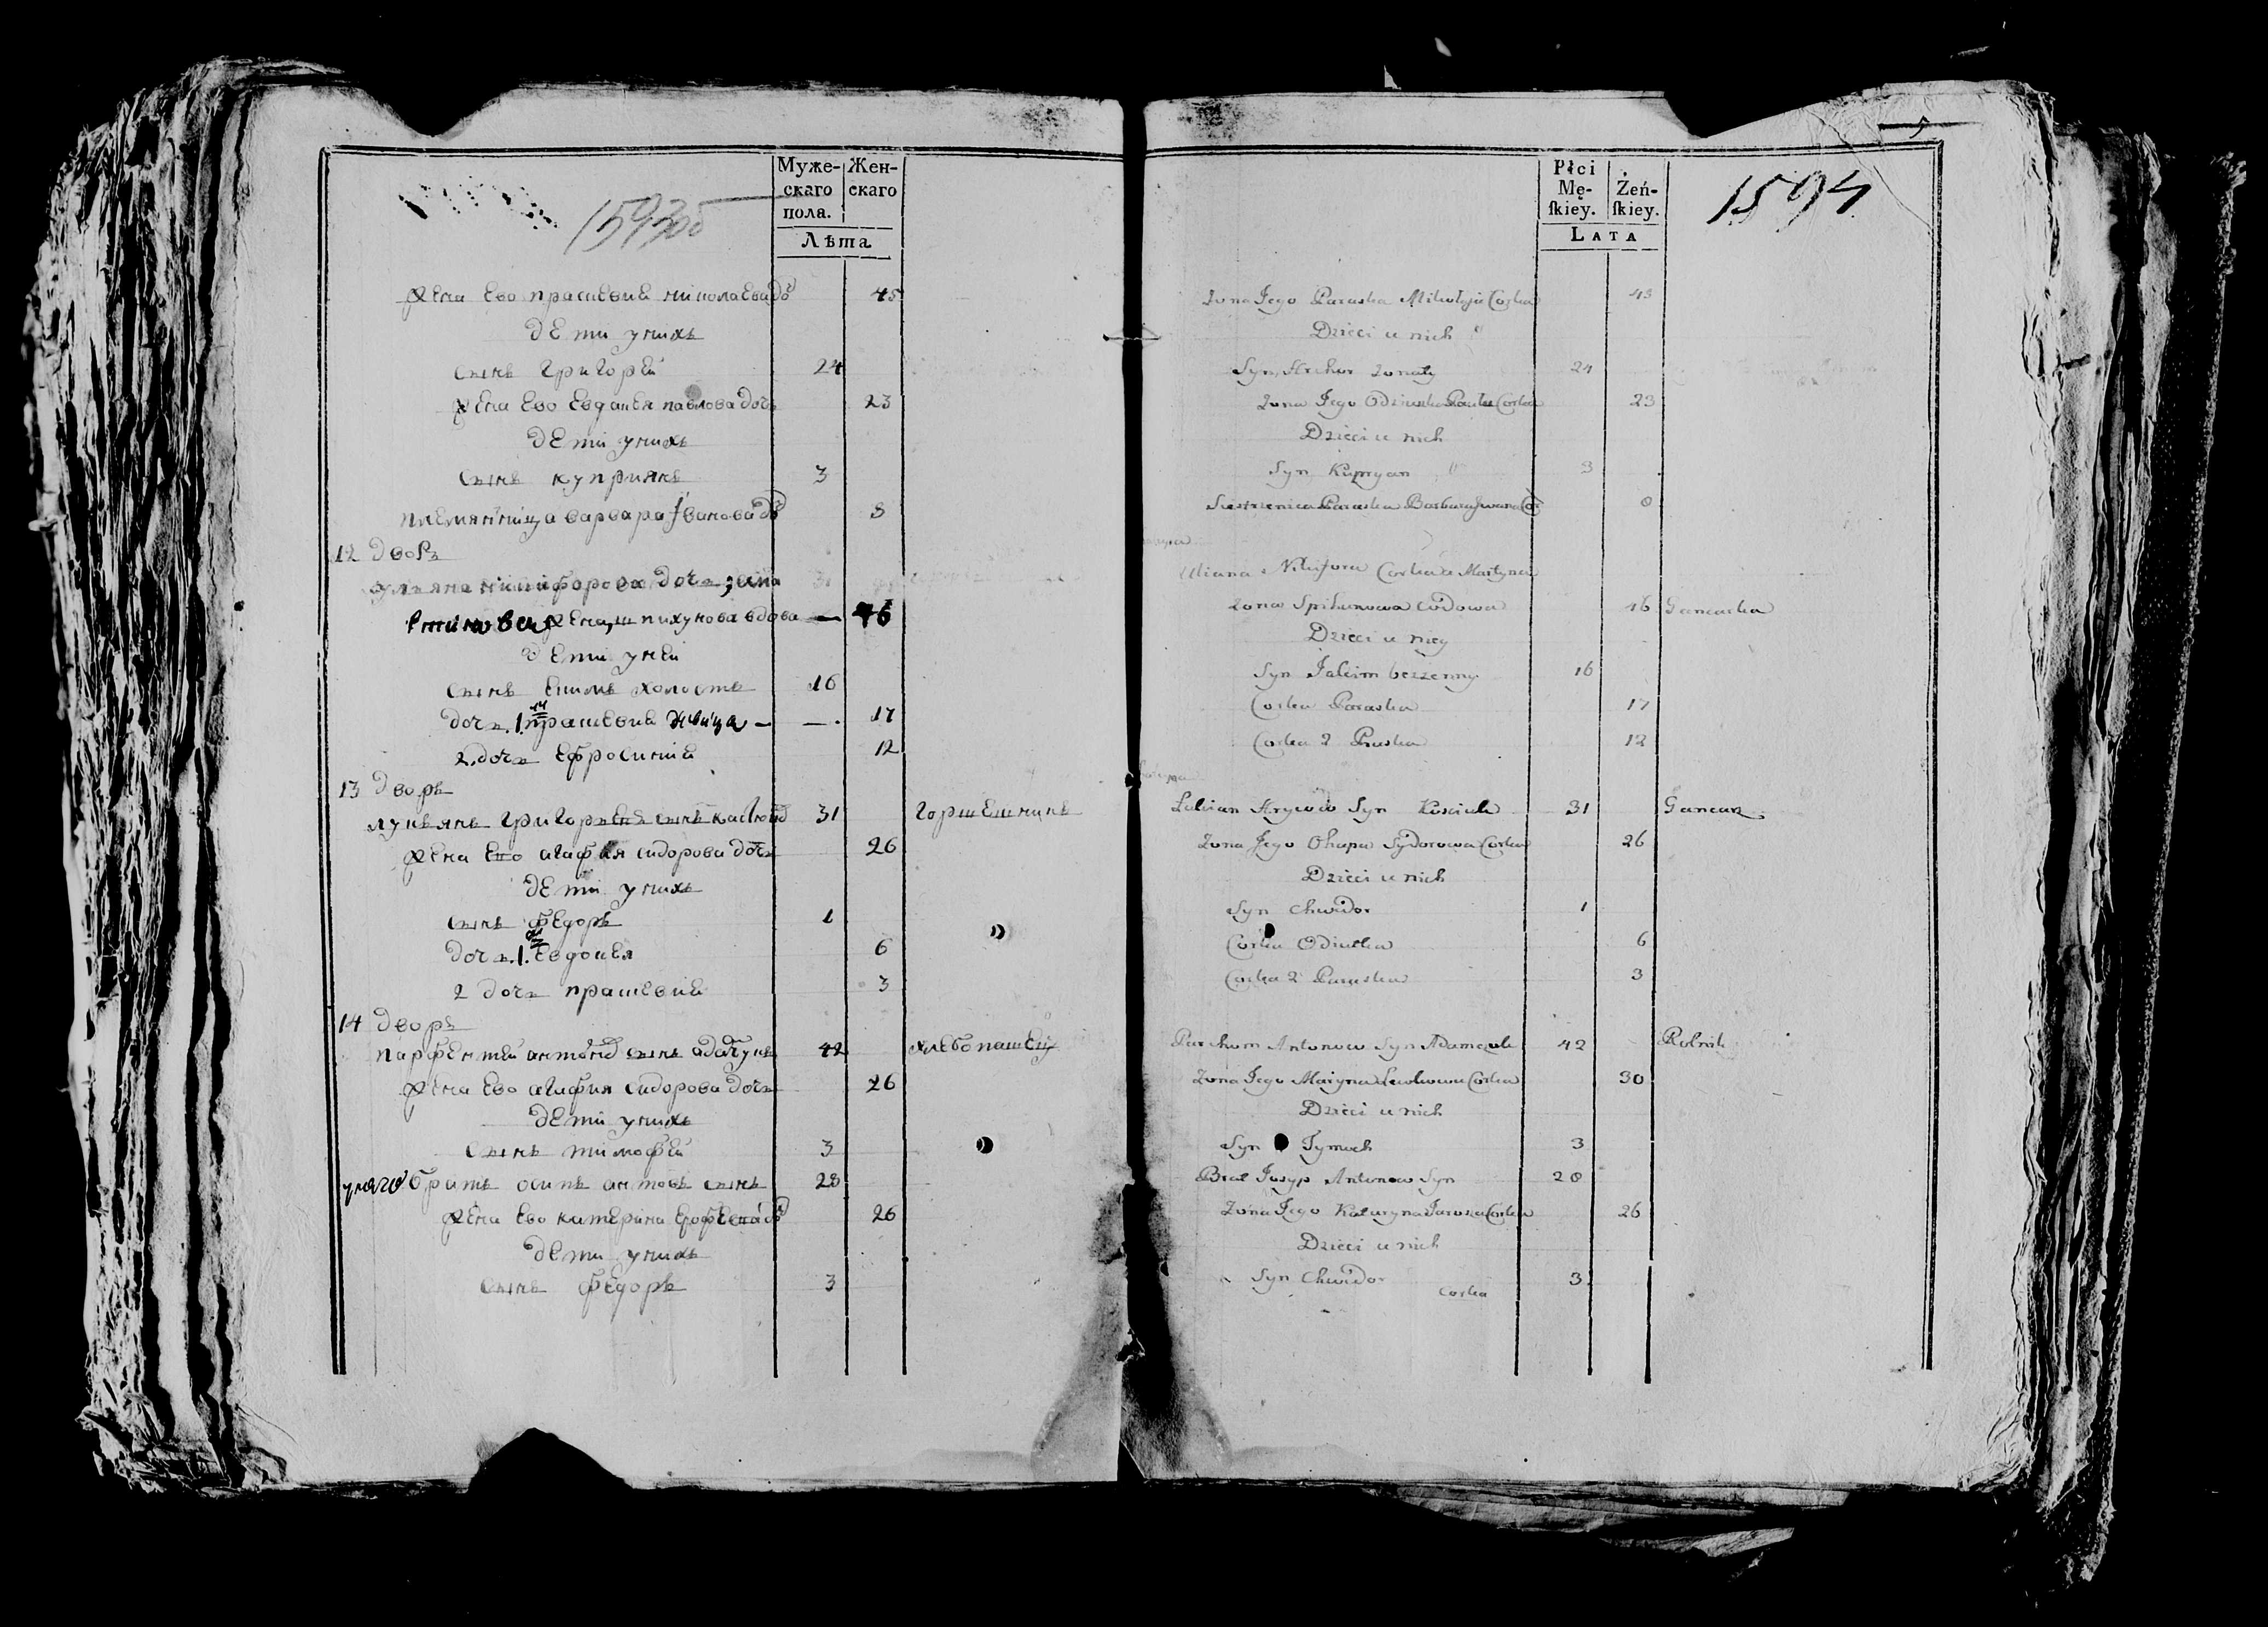 1593об
Муже-
скаго
пола.
Жен-
скаго
Лѣта
жена ево прасковия николаева до 45
дети унихъ
сынъ григореи 24
жена ево евдокея павлова доч 23
дети унихъ
сынъ куприянъ 3
племянница варвара Иванова до 8
12 дворъ
ульяна никифорова дочь
жена шпихунова вдова — 46
дети уней
сынъ екимъ холостъ 16
дочь 1я прасковия девица — — 17
2. дочь ефросиния 12
13 дворъ
лукьянъ григорьевъ сынъ 31 горшешникъ
жена ево агафия сидорова дочь 26
дети унихъ
сынъ федоръ 1
дочь 1я евдокея 6
2 дочь прасковия 3
14 дворъ
парфентеи антонов сынъ адамчукъ 42 хлебопашец
жена ево агафия сидорова дочь 26
дети унихъ
сынъ тимофеи 3
унаго братъ осипъ антонъ сынъ 28
жена ево катерина ерофеева до 26
дети унихъ
сынъ федоръ 3
Płci
Mę-
ſkiey.
Żeń-
ſkiey.
LATA
1594
Zona Jego Paraska Mikołaja Corka 45
Dzieci u nich
Syn Hrehor zonaty 24
Zona Jego Odiutka Pawła Corka 23
Dzieci u nich
Syn Kupryan 3
Siestrzenica Paraska Barbara Jwana Cor 8
Uliana Nikifora Corka a Martyna
zona Spihunowa wdowa 46 Gancarka
Dzieci u niey
Syn Jakim bezzenny 16
Corka Paraska 17
Corka 2 Pruska 12
Lukian Hryców Syn Kościuk 31 Gancarz
Zona Jego Ohapa Sydorowa Corka 26
Dzieci u nich
Syn Chwidor 1
Corka Odiutka 6
Corka 2 Paraska 3
Parchom Antonow Syn Adamczuk 42 Rolnik
Zona Jego Maryna Lewkowa Corka 30
Dzieci u nich
Syn Tymoch 3
Brat Josyp Antonow Syn 28
Zona Jego Kataryna Jarosza Corka 26
Dzieci u nich
Syn Chwidor 3
Corka